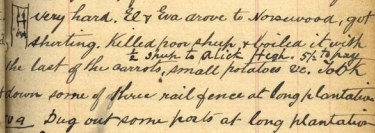 very hard. El & Eva drove to Norsewood, got
shirting. Killed poor sheep & boiled it with
½ sheep to Alick High. 5/- to pay
the last of the carrots, small potatoes &c. Took
down some of three rail fence at long plantation
Dug out some posts at long plantation